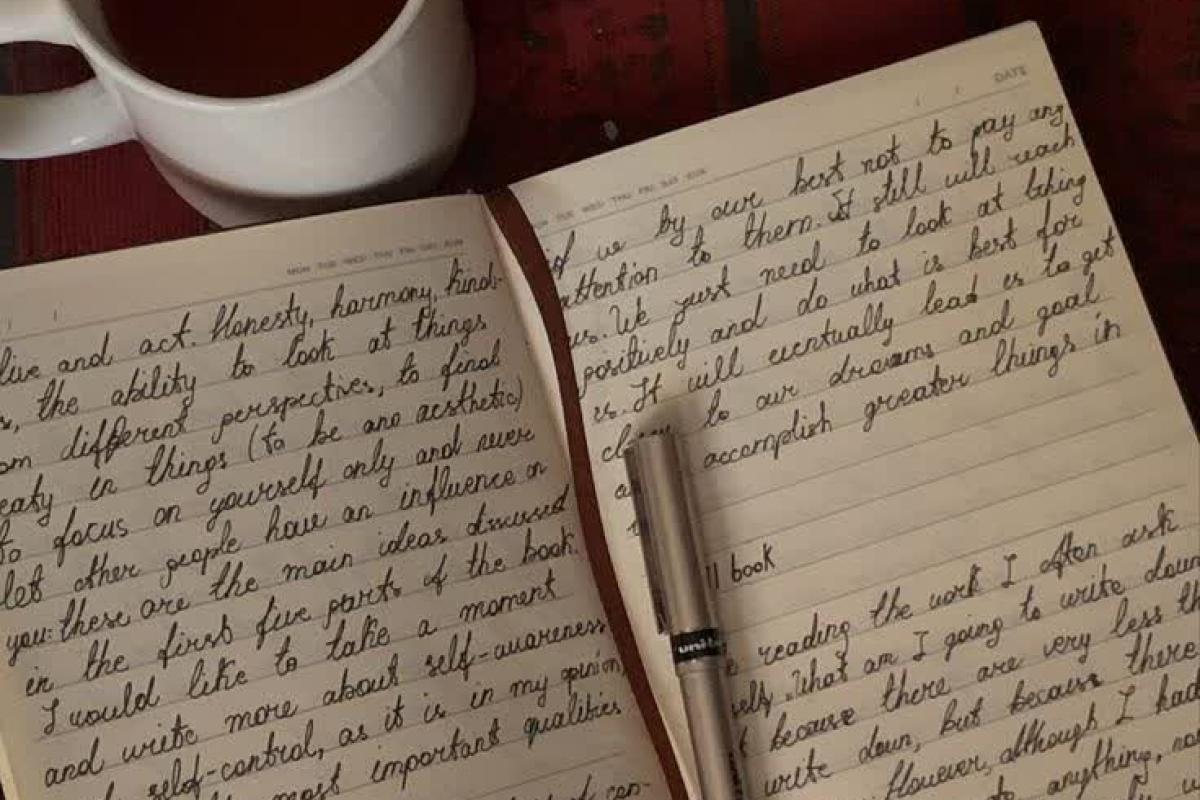 MON TUE WED THU FRI SAT SUN
live and act. Honesty, harmony, kind-
the ability to look at things
different perspectives, to find
in things (to be and aesthetic)
to focus on yourself only and never
let other people have an influence on
you: these are the main ideas discussed
in the first five parts of the book.
I would like to take a moment
and write more about self-awareness
self-control, as it is in my opinion,
most important qualities
DATE
TUE WED THU FRI SAT SUN
if we by our best not to pay any
attention to them. It still will reach
us. We just need to look at thing
positively and do what is best for
us. It will eventually lead us to get
to our dreams and goal
accomplish greater things in
book
reading the work I often ask
What am I going to write down
because there are very less th
write down, but because there
However, although I had
to anything, no
uni